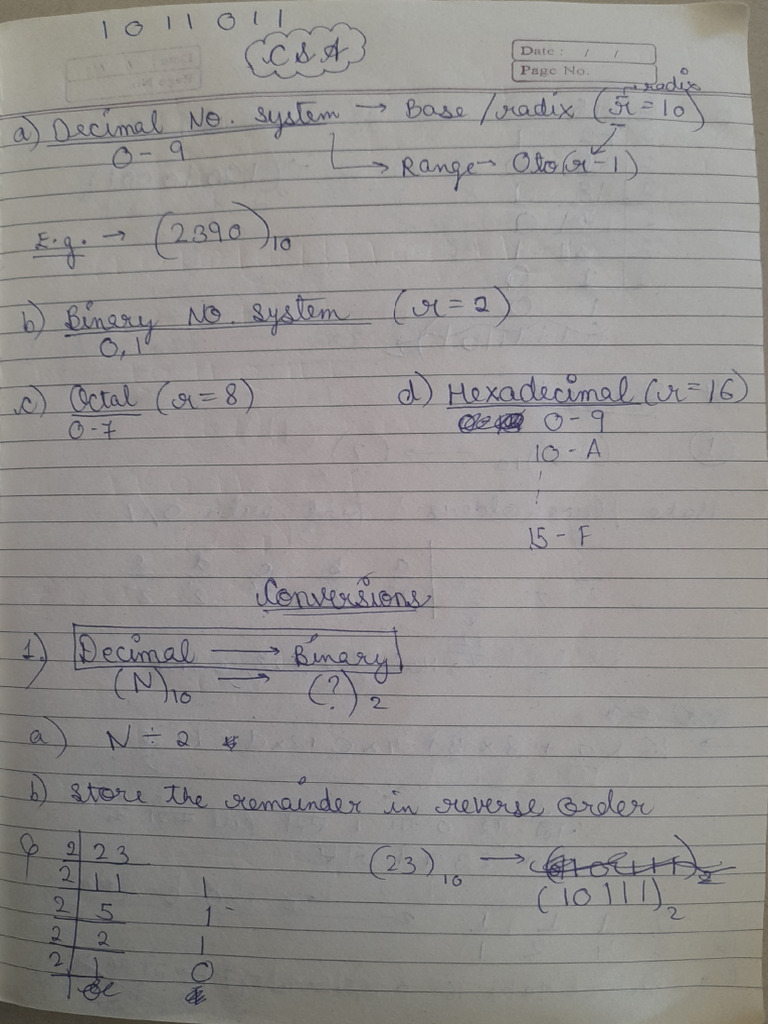 1 0 1 1 0 1 1
CSA
Date : / /
Page No.
radix
a) Decimal No. system → Base / radix (r = 10)
0 - 9
→ Range → 0 to (r - 1)
E.g. → (2390)10
b) Binary No. system (r = 2)
0, 1
c) Octal (r = 8)
0 - 7
d) Hexadecimal (r = 16)
0 - 9
10 - A
15 - F
Conversions
1.) Decimal → Binary
(N)10 → (?)2
a) N ÷ 2
b) store the remainder in reverse order
Q 2 23
2 11 1
2 5 1
2 2 1
2 1 0
(23)10 →
(10111)2